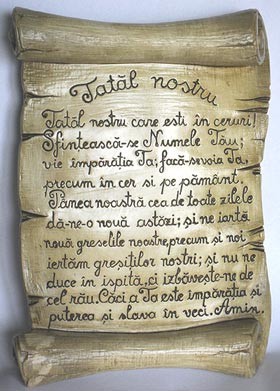 Tatăl nostru
Tatăl nostru care esti în ceruri!
Sfintească-se Numele Tău;
vie împărăția Ta; facă-se voia Ta,
precum în cer si pe pământ.
Pânea noastră cea de toate zilele
dă-ne-o nouă astăzi; și ne iartă
nouă greselile noastre, precum și noi
iertăm greșiților nostri; și nu ne
duce în ispită, ci izbăvește-ne de
cel rău. Căci a Ta este împărăția și
puterea si slava în veci. Amin.